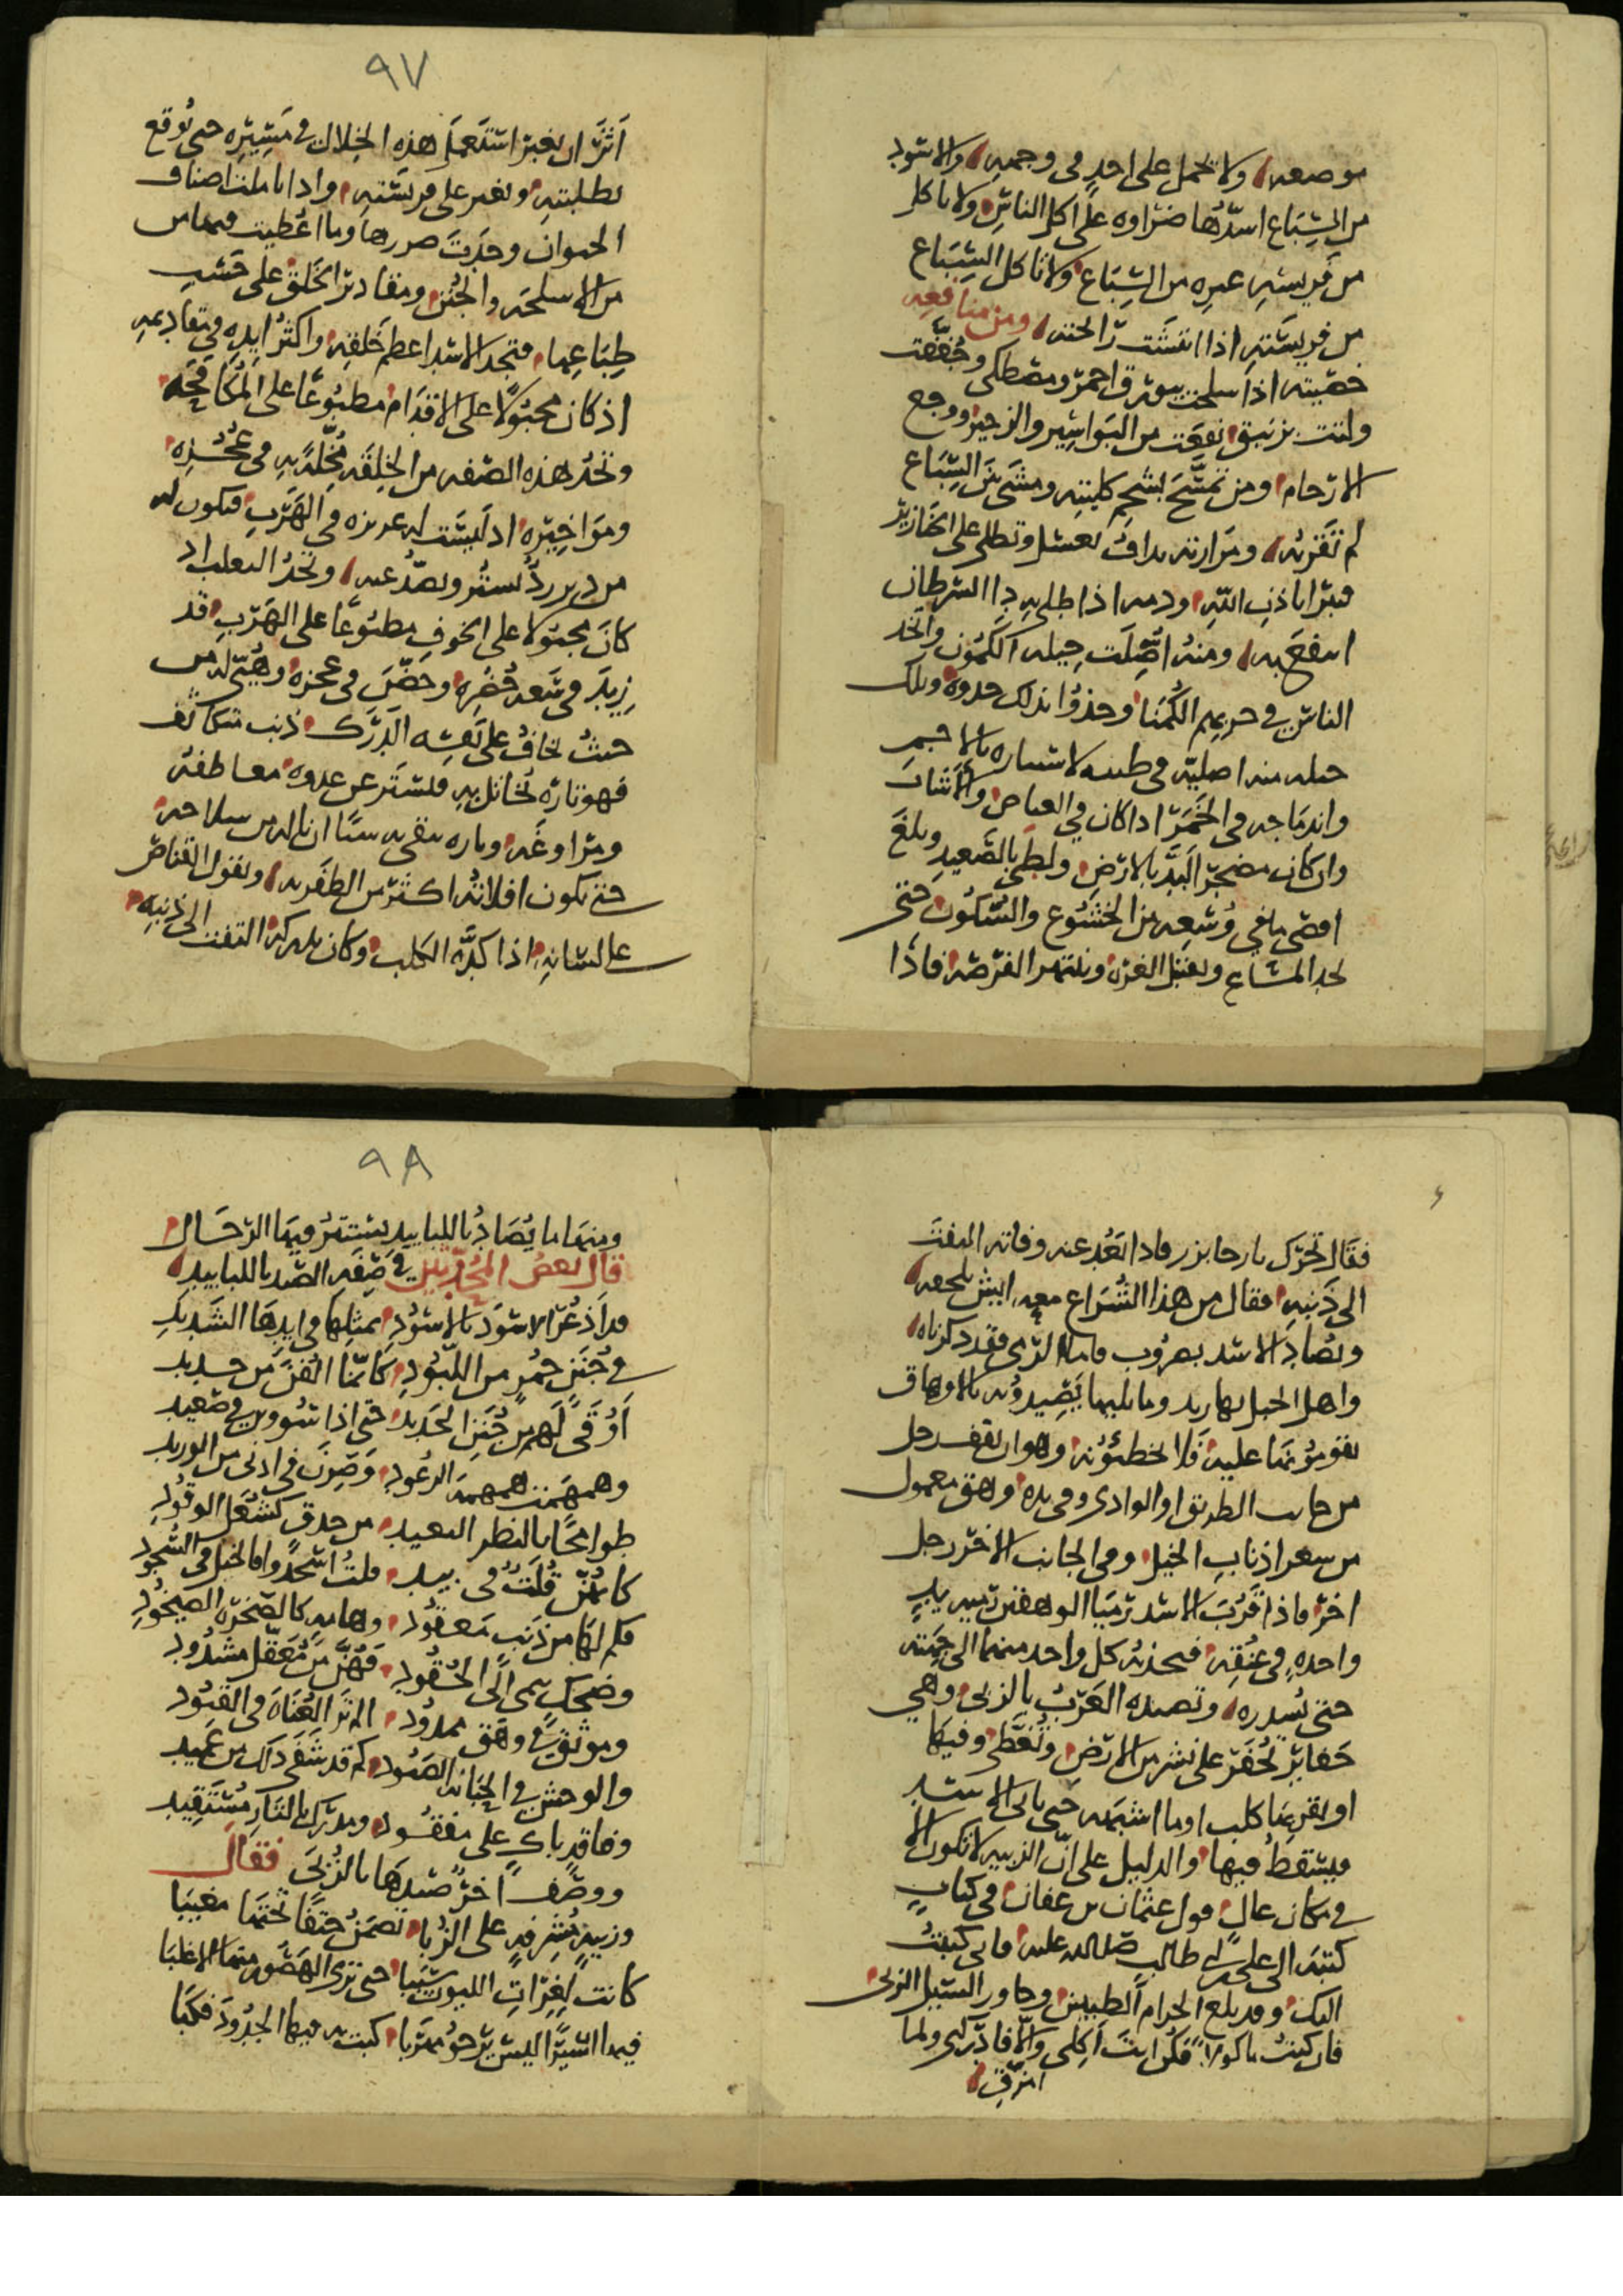 موضعه ولا تحمل على احدٍ فى وجهه والاسود
من السباع اشدّها ضراوه على اكل الناس ولا ياكل
من فريسه غيره من السباع ولا تاكل السباع
من فريسته اذا انتشت رائحته ومن منافعه
خصيته اذا سلخت ببورق احمر ومصطكى وجففت
ولتت بزنبق نفعت من البواسير والزحير ووجع
الارحام ومن تمسّح بشحم كليته ومشى بين السباع
لم تقربه ومرارته بداف بعسل وتطلى على الخنازير
فتبرا باذن الله ودمه اذا طلى به دا السرطان
انتفع به ومنه اصّلت حيله الكمون واتخذ
الناس فى حربهم الكمنا وحذوا بذلك حذوه وتلك
حيله منه اصليه فى طبعه لاستتاره بالاجم
واندماجه فى الخمر اذا كان فى الغياض والانشاب
وان كان مضجر البد بالارض ولطى بالصعيد وبلغ
اقصى ما فى وسعه من الخشوع والسكون حتى
يجد المساع ويغتنل الغره وينتهز الفرصه فاذا
٩٧
اثر ان يغير استعمل هذه الخلال فى مسيره حتى يوقع
بطلبته ويغير على فريسته واذا تاملت اصناف
الحيوان وجدت ضررها وما اعطيت قسمها من
من الاسلحه والجنن ومقادير الخلق على حسب
طباعها فتجد الاسد اعظم خلقه واكثر ايده فى تقاديمه
اذ كان مجبولا على الاقدام مطبوعا على المكافحه
وتجد هذه الصفه من الخلقه مخلّه به فى عجزه
ومواخيره اذ ليست له عزيزه فى الهرب فيكون له
من دبر رد يستر ويصد عنه وتجد الثعلب اذ
كان مجبولا على الخوف مطبوعا على الهرب قد
زيد فى سعه حضره وحضّل فى عجزه وهيّئ له من
حيث يخاف على نفسه الدرك ذنب متكاثف
فهو تاره يخاتل به فيستتر عن عدوه معاطفه
ومراوغه وتاره يتقى به سنا ان ناله من سلاحه
حتى يكون افلاته اكثر من الظفر به ويقول القناص
على لسانه اذا كدّه الكلب وكان يدركه التفت الى ذنبه
فقال تحرّك يا رحا بزر فاذا بعد عنه وفاته التفت
الى ذنبه فقال من هذا الشراع معه ايش يلحقه
ويصاد الاسد بضروب فاما الزبى فقد ذكرناه
واهل الجبل بهاربد وما يليها يصيدونه بالاوهاق
يقومونها عليه فلا يخطئونه وهو ان يقف رجل
من جانب الطريق او الوادى وفى يده وهق معمول
من شعر اذناب الخيل وفى الجانب الاخر رجل
اخر فاذا قرب الاسد رميا الوهقين تيبس يدٍ
واحده فى عنقه فيجذبه كل واحد منهما الى جهته
حتى يسدره وتصيده العرب بالزبى وهى
حفاير تحفر على نشر من الارض وتغطى وفيها
او بقربها كلب او ما اشبهه حتى ياتى الاسد
فيسقط فيها والدليل على ان الزبيه لا تكون الا
فى مكان عال قول عثمان بن عفان فى كتاب
كتبه الى على بن ابى طالب صلى الله عليه فانى كتبت
اليك وقد بلغ الحرام الطبيين وجاوز السيل الزبى
فان كنت ماكولا فكن انت اكلى والا فادركنى ولما
امزق
٩٨
ومنها ما يصاد باللبابيد يستتر فيها الرجال
قال بعض المحدثين فى صفه الصيد باللبابيد
قد اذعر الاسود بالاسود بمثلها فى ايدها الشديد
فى جنن حمر من اللبود كانما القين من حديد
اوقى لهم من جنن الحديد حتى اذا شوون فى صعيد
وهمهمت همهمه الرعود وصرن فى ادنى من الوريد
طوامحا بالنظر البعيد من حدق كشعل الوقود
كانهن قلت فى بيد قلت اسجدوا فالخيل فى السجود
فكم لها من ذنب معقود وهامه كالصخره الصيخود
وضحك ينمى الى الحقود فهن من معقل مشدود
وموثق فى وهق ممدود الم تر العناه فى القيود
والوحش فى الجبانه الصيود كم قد شفى ذلك من عميد
وفاقد باك على مفقود ومدرك بالثار مستقيد
ووصف اخر صيدها بالزبى فقال
وزبيه مشرفه على الزبا تضمن حتفا تحتها مغيبا
كانت لغرات الليوث سببا حتى ترى الهصور منها الاغلبا
فيها اسيرا ليس يرجو مهربا كبت به فيها الجدود فكبا